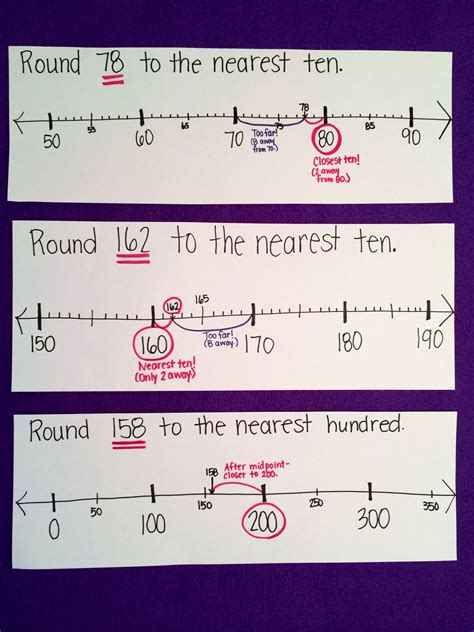 Round 78 to the nearest ten.
78
50 55 60 65 70 75 80 85 90
Too far!
(8 away
from 70.)
Closest ten!
(2 away
from 80.)
Round 162 to the nearest ten.
162 165
150 160 170 180 190
Too far!
(8 away.)
Nearest ten!
(Only 2 away.)
Round 158 to the nearest hundred.
158 After midpoint-
closer to 200.
0 50 100 150 200 250 300 350